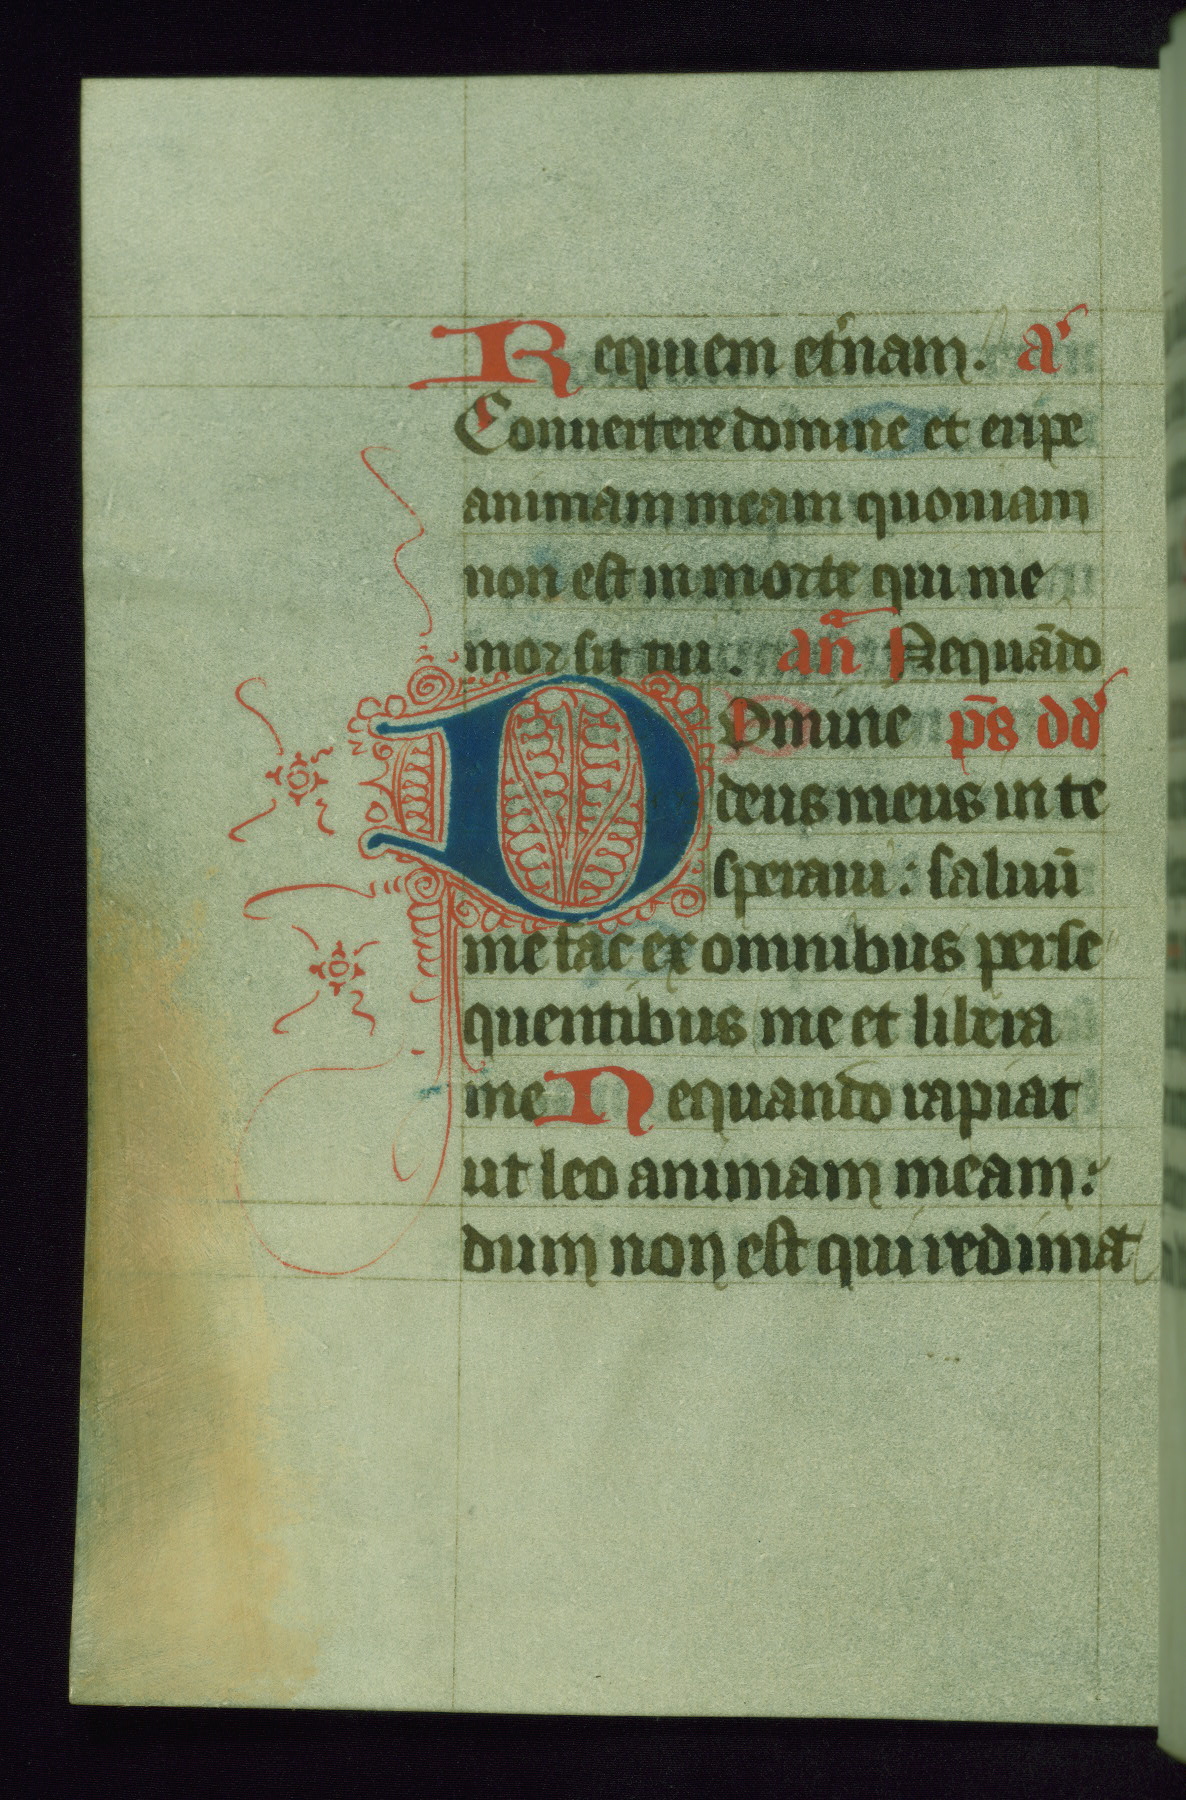 Requiem et̉nam. a᷑
Conuertere domine et eripe
animam meam quoniam
non est in morte qui me
mor sit tui. an̄ Nequādo
Domine ps̄ dd᷑
deus meus in te
speraui: saluū
me fac ex omnibus perse
quentibus me et libera
me Nequando rapiat
ut leo animam meam:
dum non est qui redimat